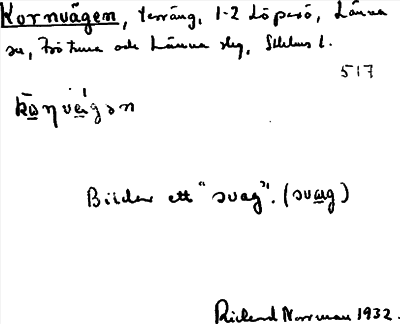 Kornvägen, terräng, 1-2 Löparö, Länna
sn, Frötuna och Länna slg, Sthlms l.
517
Bildar ett "svag". (svag)
Rickard Norrman 1932.